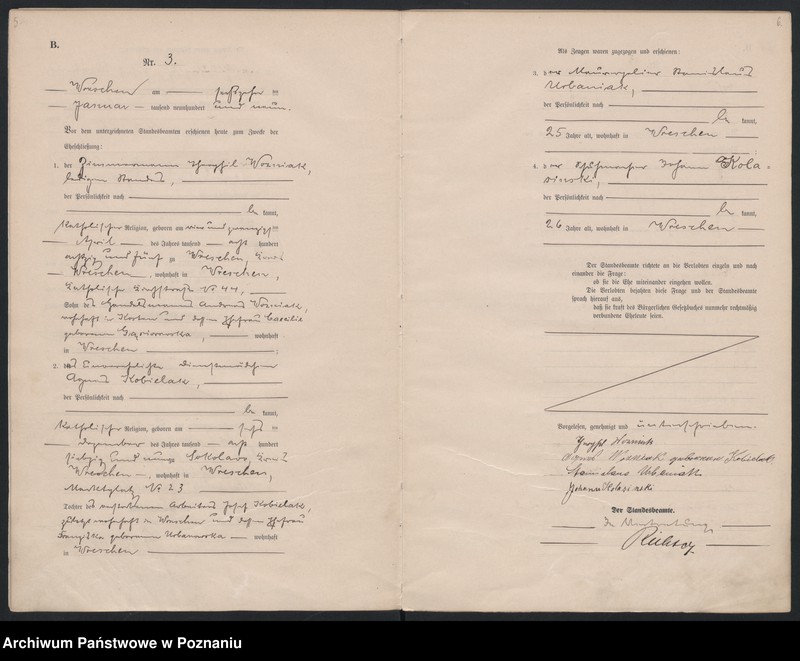 5.
B.
Nr. 3.
Wreschen am sechszehn ten
Januar tausend neunhundert und neun.
Vor dem unterzeichneten Standesbeamten erschienen heute zum Zwecke der
Eheschließung:
1. der Zimmermann Theophil Wozniak,
ledigen Standes,
der Persönlichkeit nach
be kannt,
katholischer Religion, geboren am vier und zwanzigs ten
April des Jahres tausend acht hundert
achtzig und fünf zu Wreschen, Kreis
Wreschen, wohnhaft in Wreschen,
Katholische Kirchstraße No 44,
Sohn des Handelsmanns Andreas Wozniak,
wohnhaft in und dessen Ehefrau Caecilie
geborenen wohnhaft
in Wreschen ;
2. die Dienstmädchen
Agnes Kobielak,
der Persönlichkeit nach
be kannt,
katholischer Religion, geboren am sechs ten
Dezember des Jahres tausend acht hundert
siebzig und neun zu Sokolowo, Kreis
Wreschen, wohnhaft in Wreschen,
Marktplatz No 23
Tochter des verstorbenen Arbeiters Josef Kobielak,
zuletzt wohnhaft in Wreschen und dessen Ehefrau
Franziska geborenen Urbanowska wohnhaft
in Wreschen
6.
Als Zeugen waren zugezogen und erschienen:
3. der Maurerpolier Stanislaus
Urbaniak,
der Persönlichkeit nach
be kannt,
25 Jahre alt, wohnhaft in Wreschen
4. der Schuhmacher Johann Kola-
sinski,
der Persönlichkeit nach
be kannt,
26 Jahre alt, wohnhaft in Wreschen
Der Standesbeamte richtete an die Verlobten einzeln und nach
einander die Frage:
ob sie die Ehe miteinander eingehen wollen.
Die Verlobten bejahten diese Frage und der Standesbeamte
sprach hierauf aus,
daß sie kraft des Bürgerlichen Gesetzbuchs nunmehr rechtmäßig
verbundene Eheleute seien.
Vorgelesen, genehmigt und unterschrieben.
Wozniak
Agnes Wozniak geborenen Kobielak
Stanislaus Urbaniak
Johann Kolasinski
Der Standesbeamte.
In Vertretung.
Archiwum Państwowe w Poznaniu